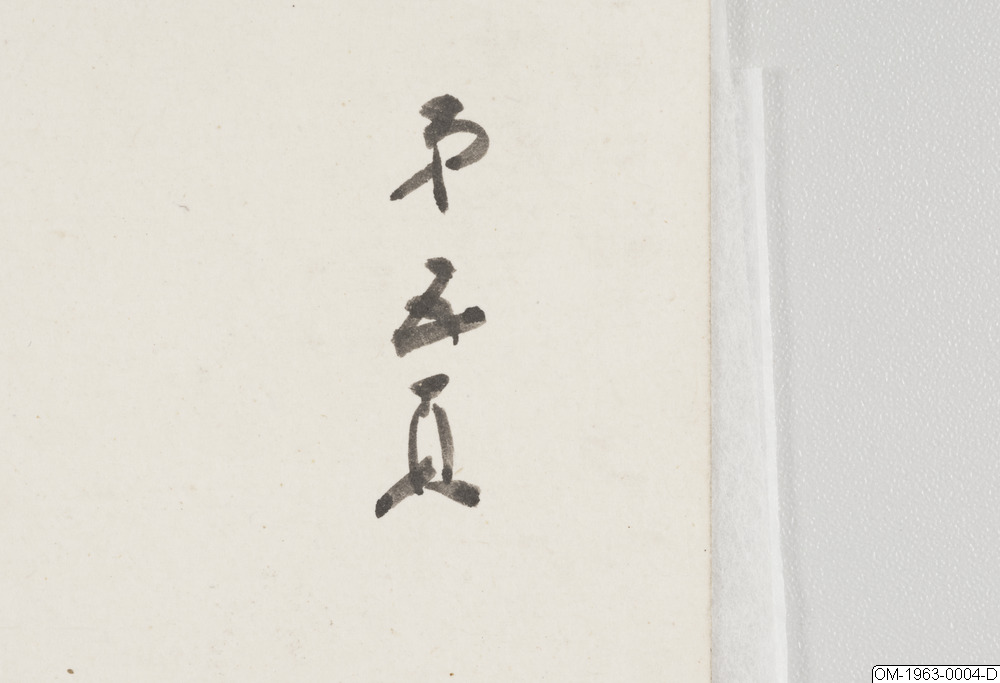 第五頁
OM-1963-0004-D